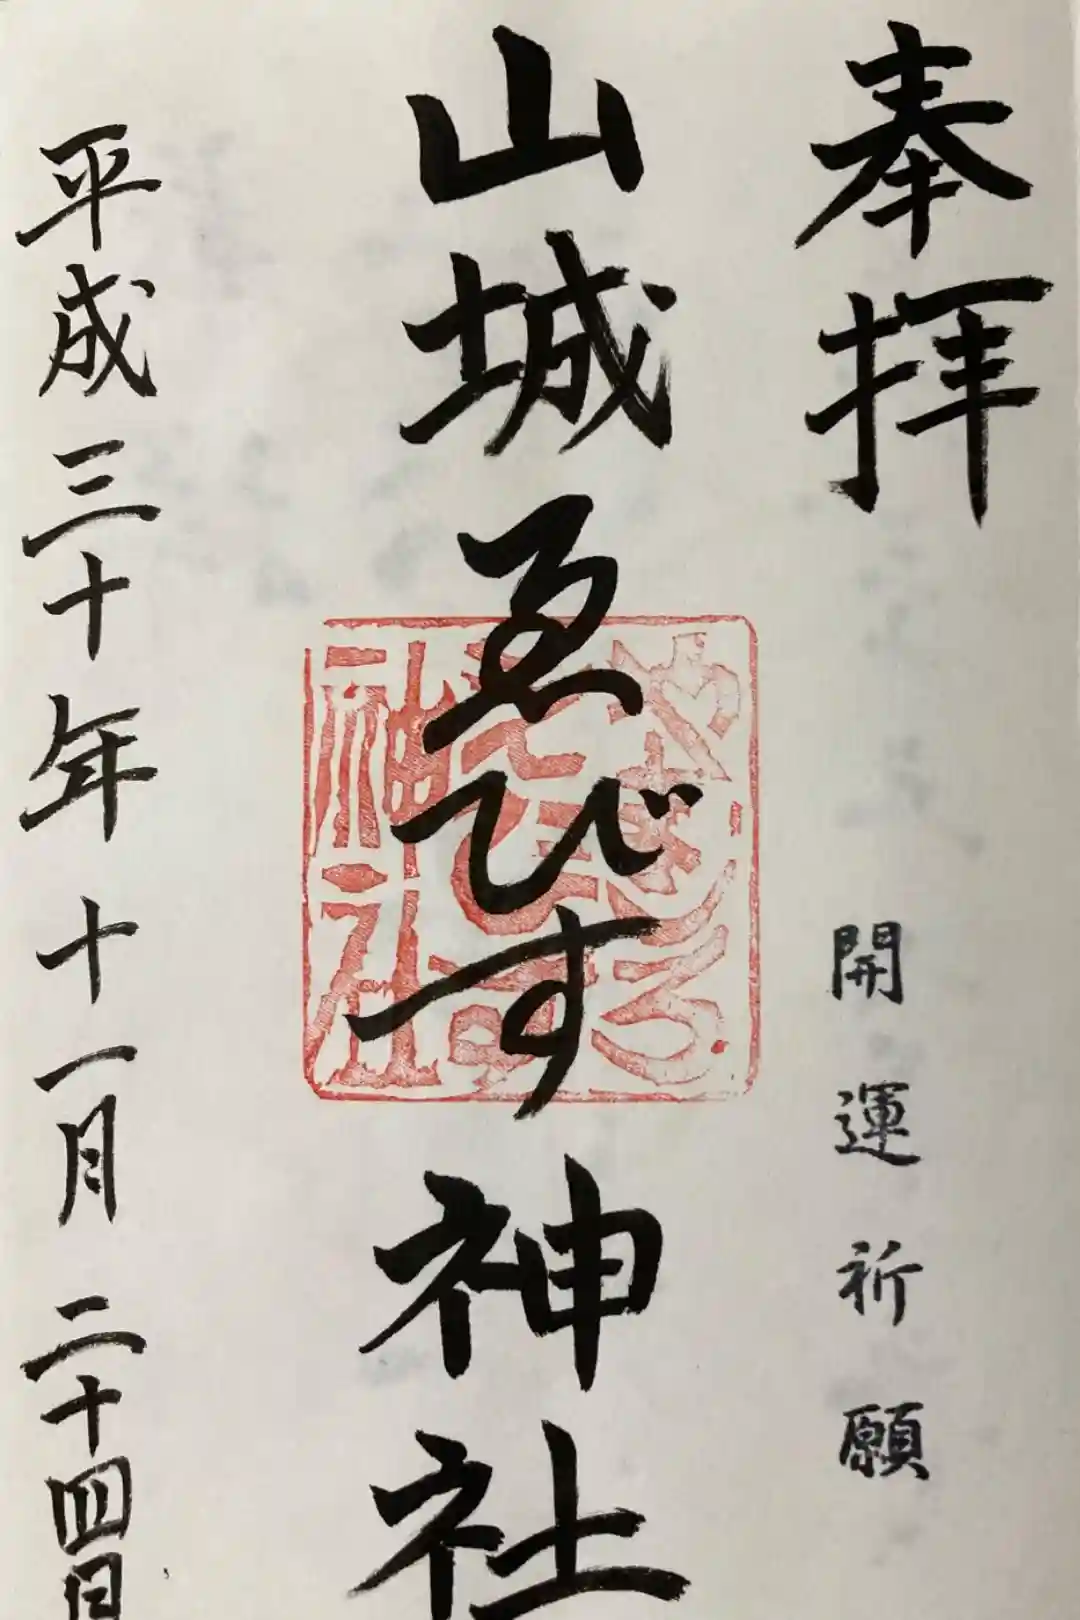 奉拝
開運祈願
山城ゑびす神社
やましろ
ゑびす
神社
平成三十年十一月二十四日